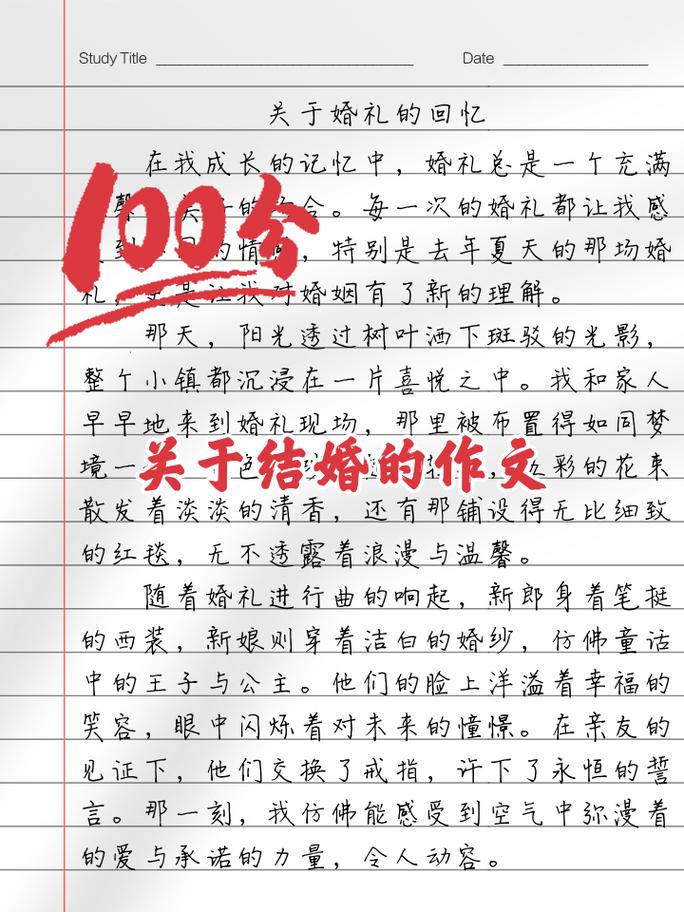 Study Title
Date
关于婚礼的回忆
在我成长的记忆中，婚礼总是一个充满
合。每一次的婚礼都让我感
100分
到的情，特别是去年夏天的那场婚
礼，更是让我对婚姻有了新的理解。
那天，阳光透过树叶洒下斑驳的光影，
整个小镇都沉浸在一片喜悦之中。我和家人
早早地来到婚礼现场，那里被布置得如同梦
境一色，五彩的花束
关于结婚的作文
散发着淡淡的清香，还有那铺设得无比细致
的红毯，无不透露着浪漫与温馨。
随着婚礼进行曲的响起，新郎身着笔挺
的西装，新娘则穿着洁白的婚纱，仿佛童话
中的王子与公主。他们的脸上洋溢着幸福的
笑容，眼中闪烁着对未来的憧憬。在亲友的
见证下，他们交换了戒指，许下了永恒的誓
言。那一刻，我仿佛能感受到空气中弥漫着
的爱与承诺的力量，令人动容。